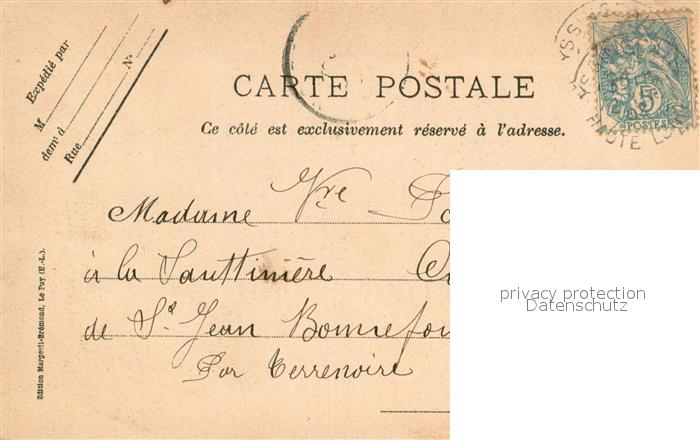 Expédié par
M
demt à
Rue
N°
CARTE POSTALE
Ce côté est exclusivement réservé à l'adresse.
5c
POSTES
HAUTE LOIRE
Madame Vve
à la Sauttinière
de St Jean Bonnefon
Par Terrenoire
Edition Margerit-Brémond, Le Puy (H.-L.).
privacy protection
Datenschutz